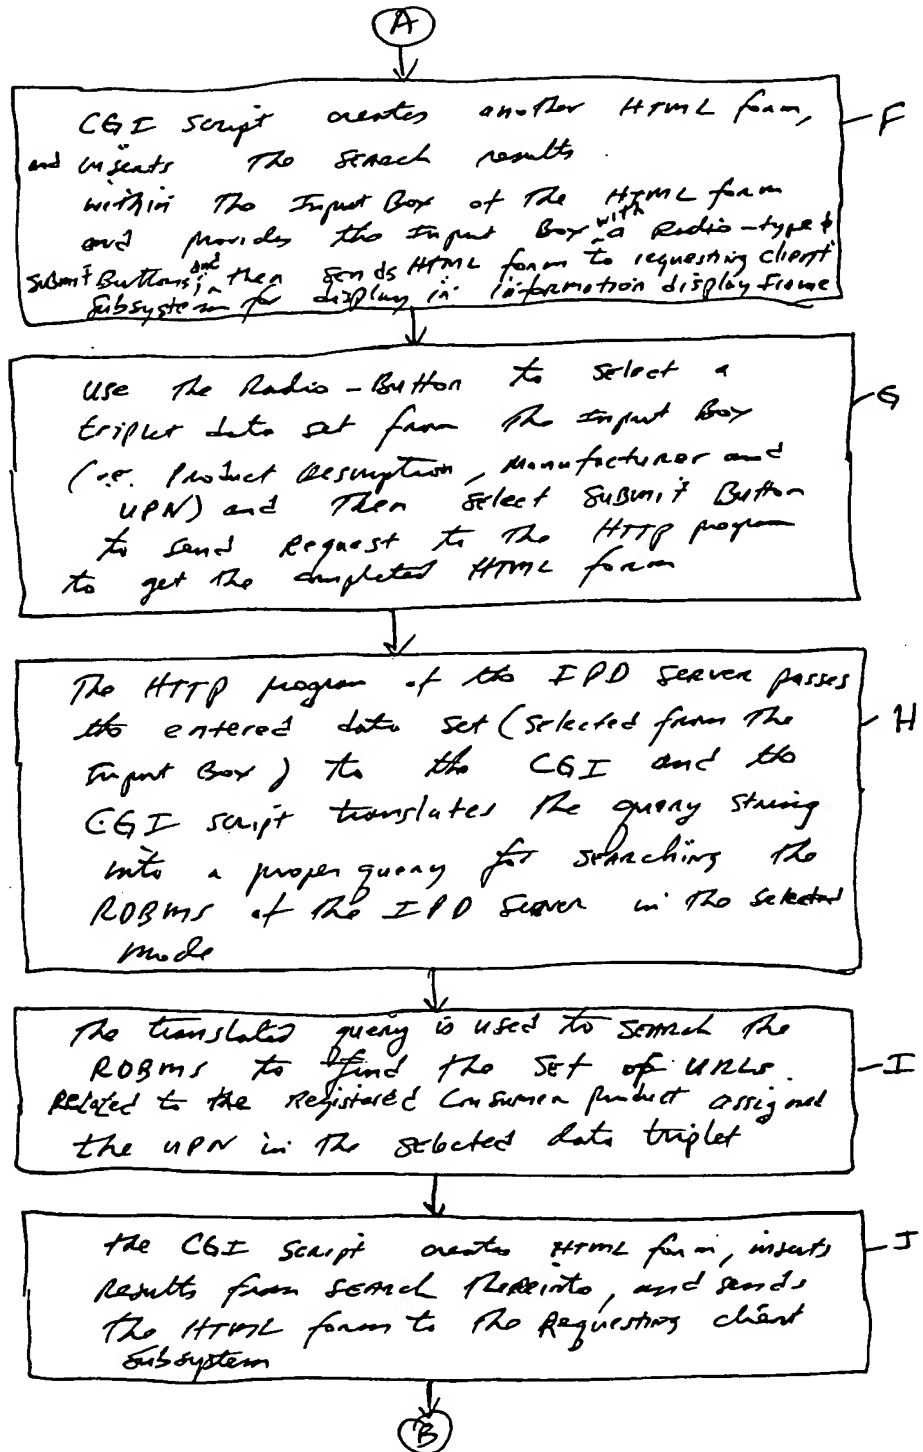 A
CGI Script creates another HTML form,
and inserts The SEARCH results
within The Input Box of The HTML form
and provides the Input Box with a Radio-type &
Submit Buttons; and then sends HTML form to requesting client
Subsystem for display in information display frame
F
Use The Radio-Button to select a
triplet data set from The Input Box
(i.e. Product Description, Manufacturer and
UPN) and Then select Submit Button
to send Request to The HTTP program
to get the completed HTML form
G
The HTTP program of the IPD Server passes
the entered data set (selected from The
Input Box) to the CGI and the
CGI script translates The query string
into a proper query for searching the
RDBMS of The IPD Server in The selected
mode
H
The translated query is used to SEARCH The
RDBMS to find the SET of URLs
Related to the Registered Consumer product assigned
the UPN in The selected data triplet
I
the CGI Script creates HTML form, inserts
Results from SEARCH Thereinto, and sends
The HTML form to The Requesting client
Subsystem
J
B